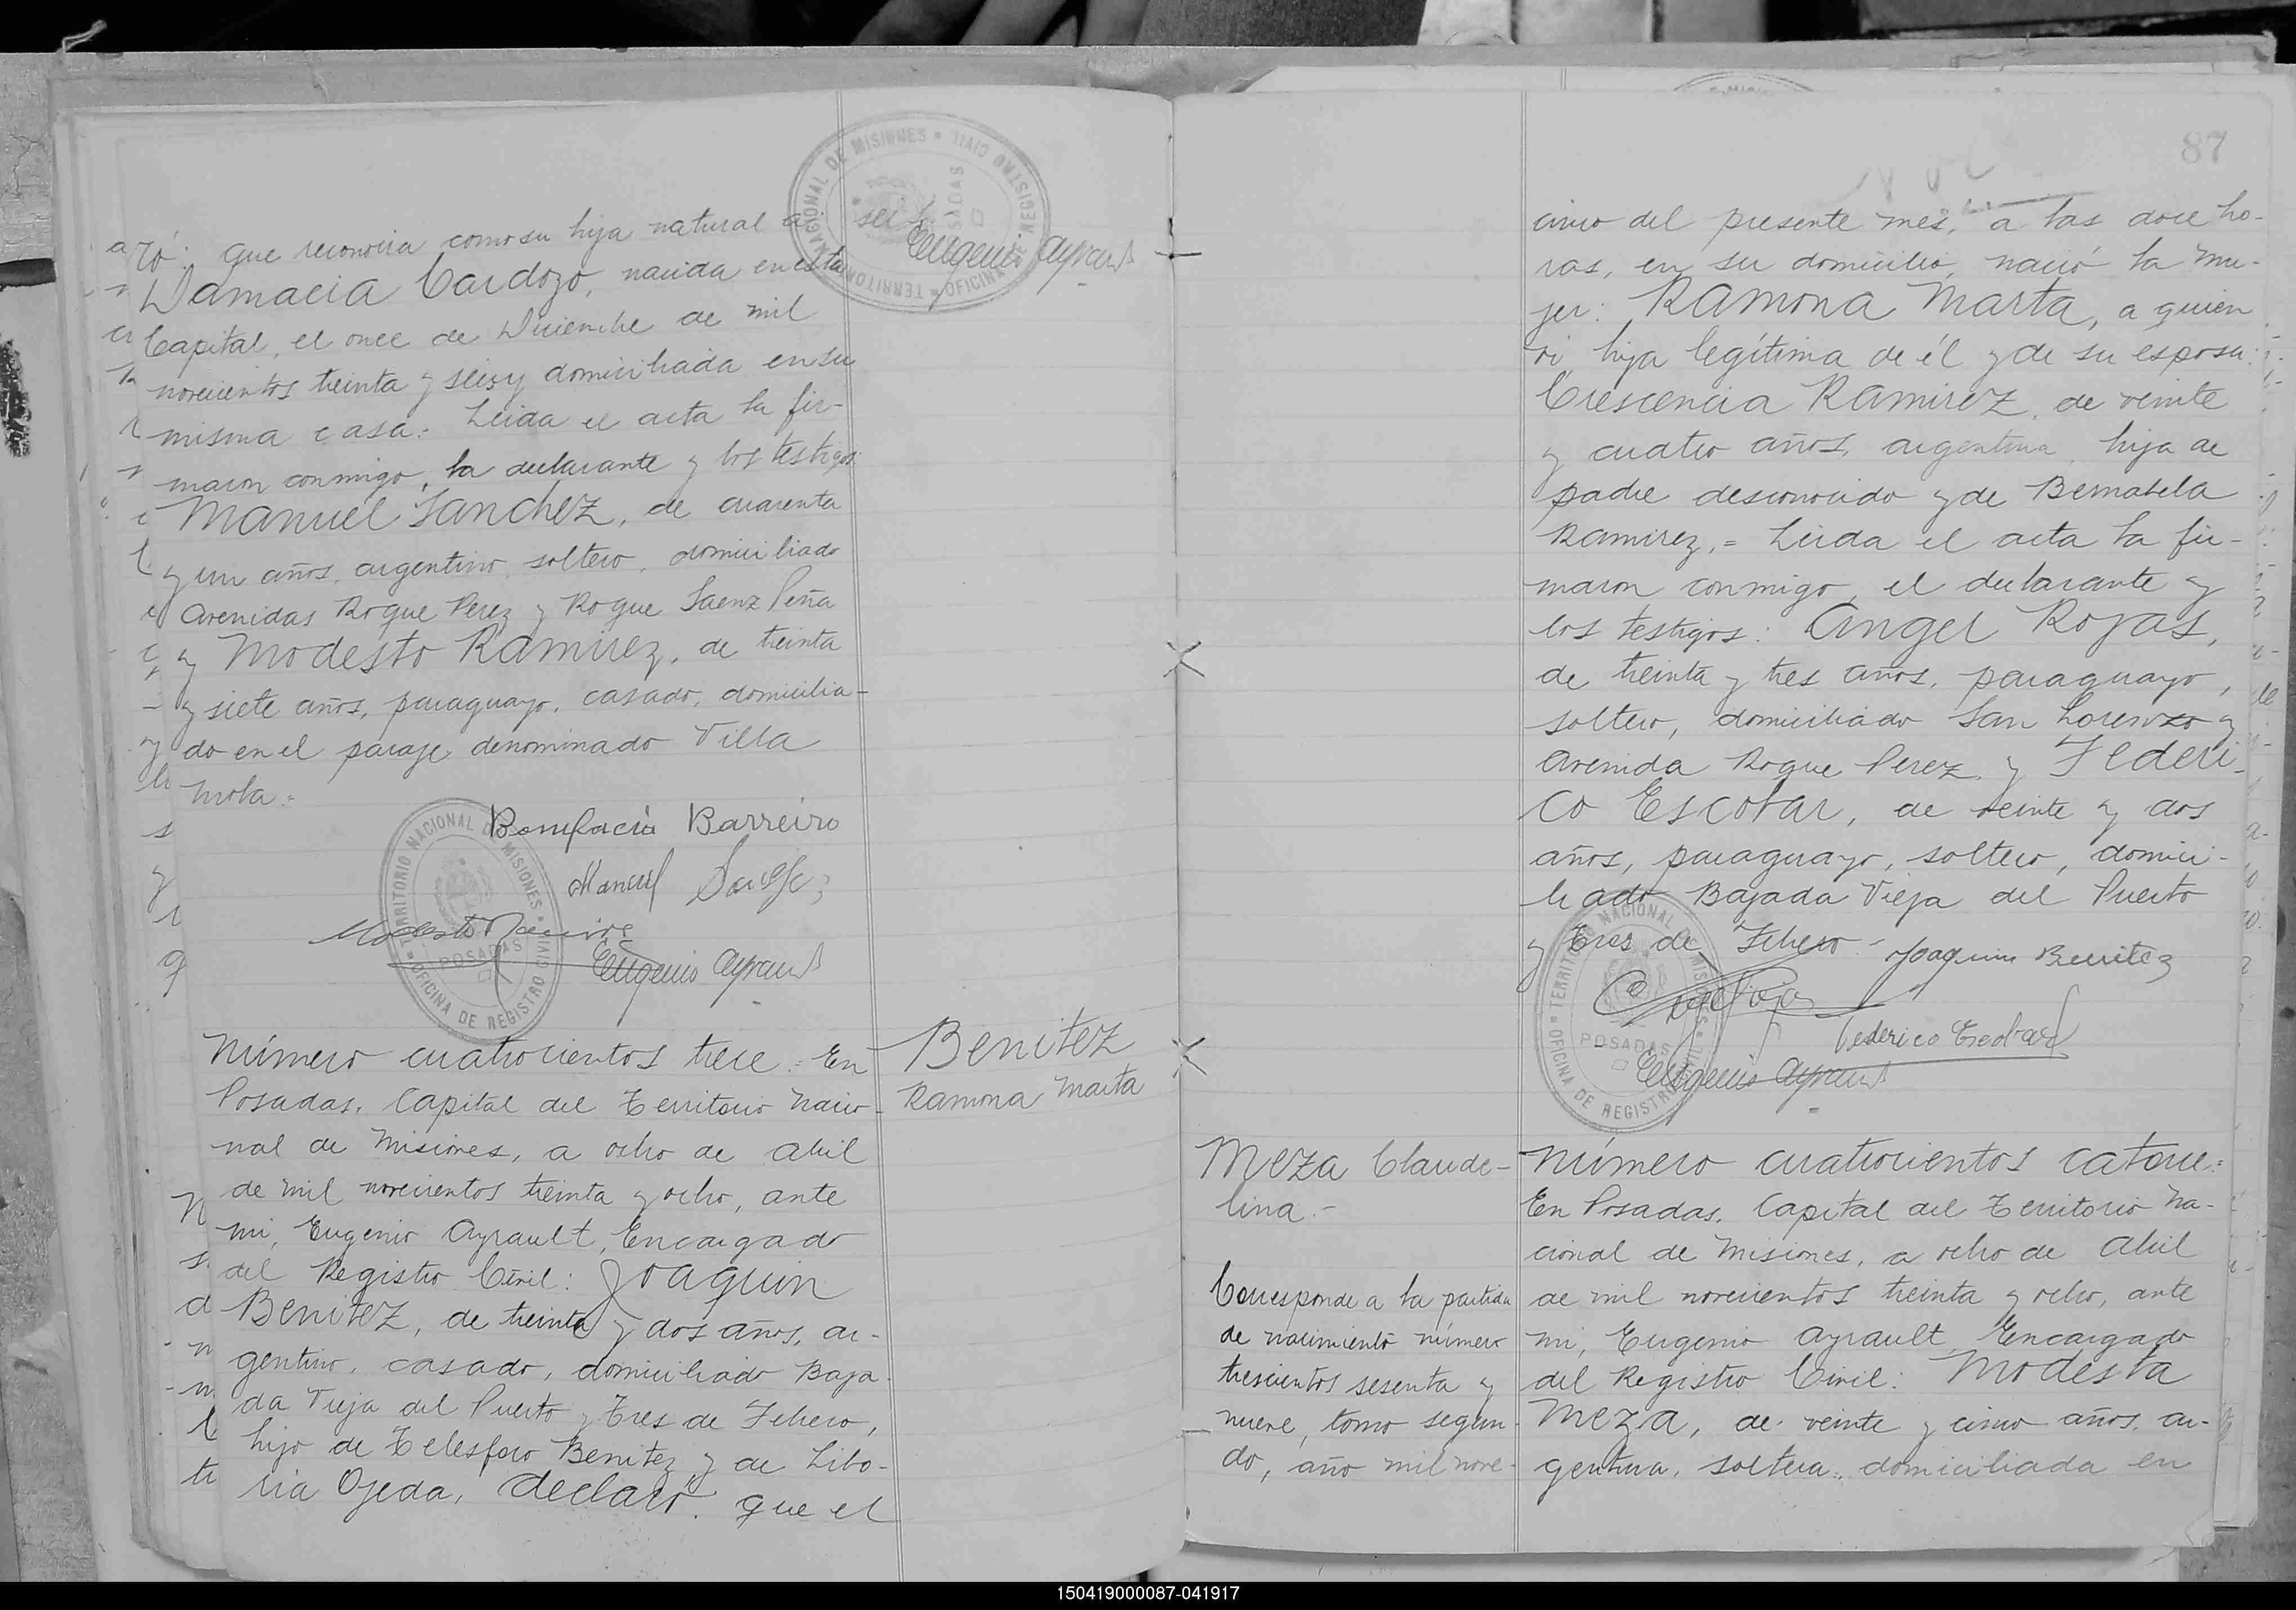 ró: que reconocia como su hija natural a
Damacia Cardozo, nacida en esta
Capital, el once de Diciembre de mil
novecientos treinta y seis y domiciliada en su
misma casa: Leida el acta la fir-
maron conmigo, la declarante y los testigos
Manuel Sanchez, de cuarenta
y un años, argentino, soltero, domiciliado
Avenidas Roque Perez y Roque Saenz Peña
y Modesto Ramirez, de treinta
y siete años, paraguayo, casado, domicilia-
do en el paraje denominado Villa
Mola.=
Bonifacia Barreiro
Manuel
Eugenio Ayrault
TERRITORIO NACIONAL DE MISIONES
OFICINA DE REGISTRO CIVIL
POSADAS
Eugenio Ayrault
TERRITORIO NACIONAL DE MISIONES
OFICINA DE REGISTRO CIVIL
POSADAS
Benitez
Ramona Marta
Número cuatrocientos trece.= En
Posadas, Capital del Territorio Nacio-
nal de Misiones, a ocho de Abril
de mil novecientos treinta y ocho, ante
mi, Eugenio Ayrault, Encargado
del Registro Civil: Joaquin
Benitez, de treinta y dos años, ar-
gentino, casado, domiciliado Baja-
da Vieja del Puerto y Tres de Febrero,
hijo de Telesforo Benitez y de Libo-
ria Ojeda, declaró: que el
87
cinco del presente mes, a las doce ho-
ras, en su domicilio, nació la mu-
jer: Ramona Marta, a quien
vi, hija legítima de él y de su esposa:
Crescencia Ramirez, de veinte
y cuatro años, argentina, hija de
padre desconocido y de Bernabela
Ramirez.= Leida el acta la fir-
maron conmigo, el declarante y
los testigos: Angel Rojas,
de treinta y tres años, paraguayo,
soltero, domiciliado San Lorenzo y
Avenida Roque Perez y Federi-
co Escobar, de veinte y dos
años, paraguayo, soltero, domici-
liado Bajada Vieja del Puerto
y Tres de Febrero.-
Joaquin Benitez
Federico Escobar
Eugenio Ayrault
TERRITORIO NACIONAL DE MISIONES
OFICINA DE REGISTRO CIVIL
POSADAS
Meza Claude-
lina.-
Corresponde a la partida
de nacimiento número
trescientos sesenta y
nueve, tomo segun-
do, año mil nove-
Número cuatrocientos catorce:
En Posadas, Capital del Territorio Na-
cional de Misiones, a ocho de Abril
de mil novecientos treinta y ocho, ante
mi, Eugenio Ayrault, Encargado
del Registro Civil: Modesta
Meza, de veinte y cinco años, ar-
gentina, soltera, domiciliada en
150419000087-041917